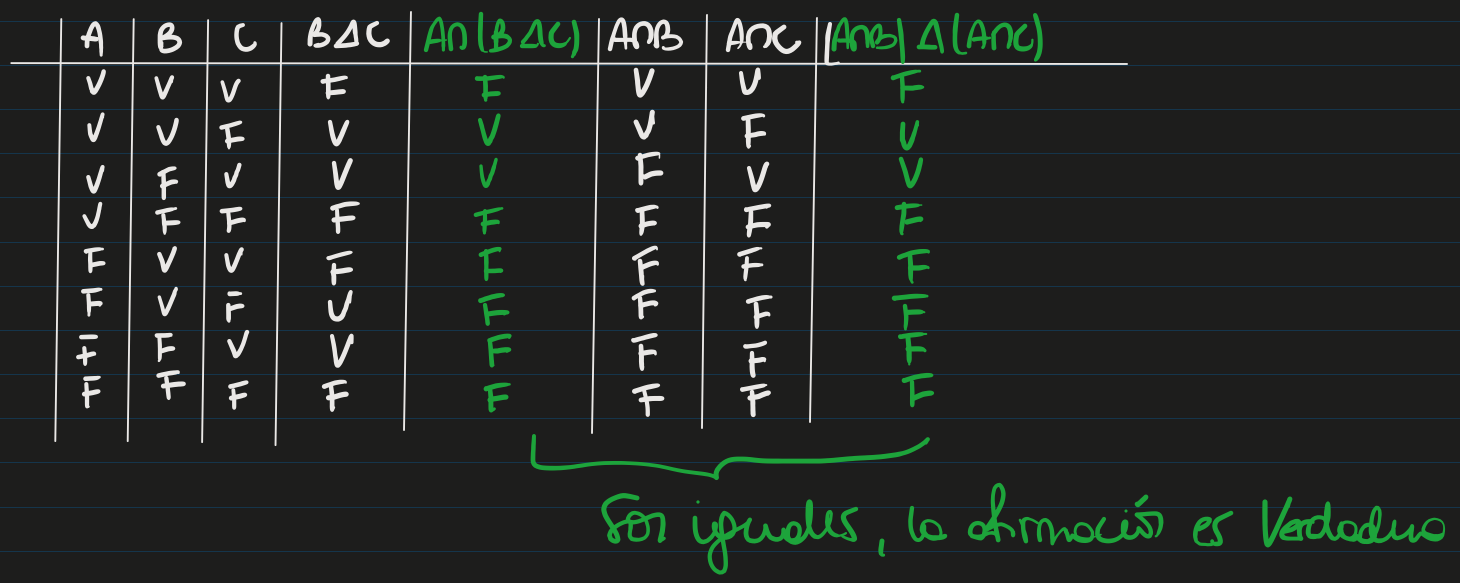 A B C BΔC A∩(BΔC) A∩B A∩C (A∩B)Δ(A∩C)
V V V F F V V F
V V F V V V F V
V F V V V F V V
V F F F F F F F
F V V F F F F F
F V F V F F F F
F F V V F F F F
F F F F F F F F
Son iguales, la afirmación es Verdadera